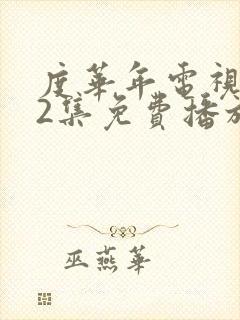 度華年電視
2集免費播放
巫燕華